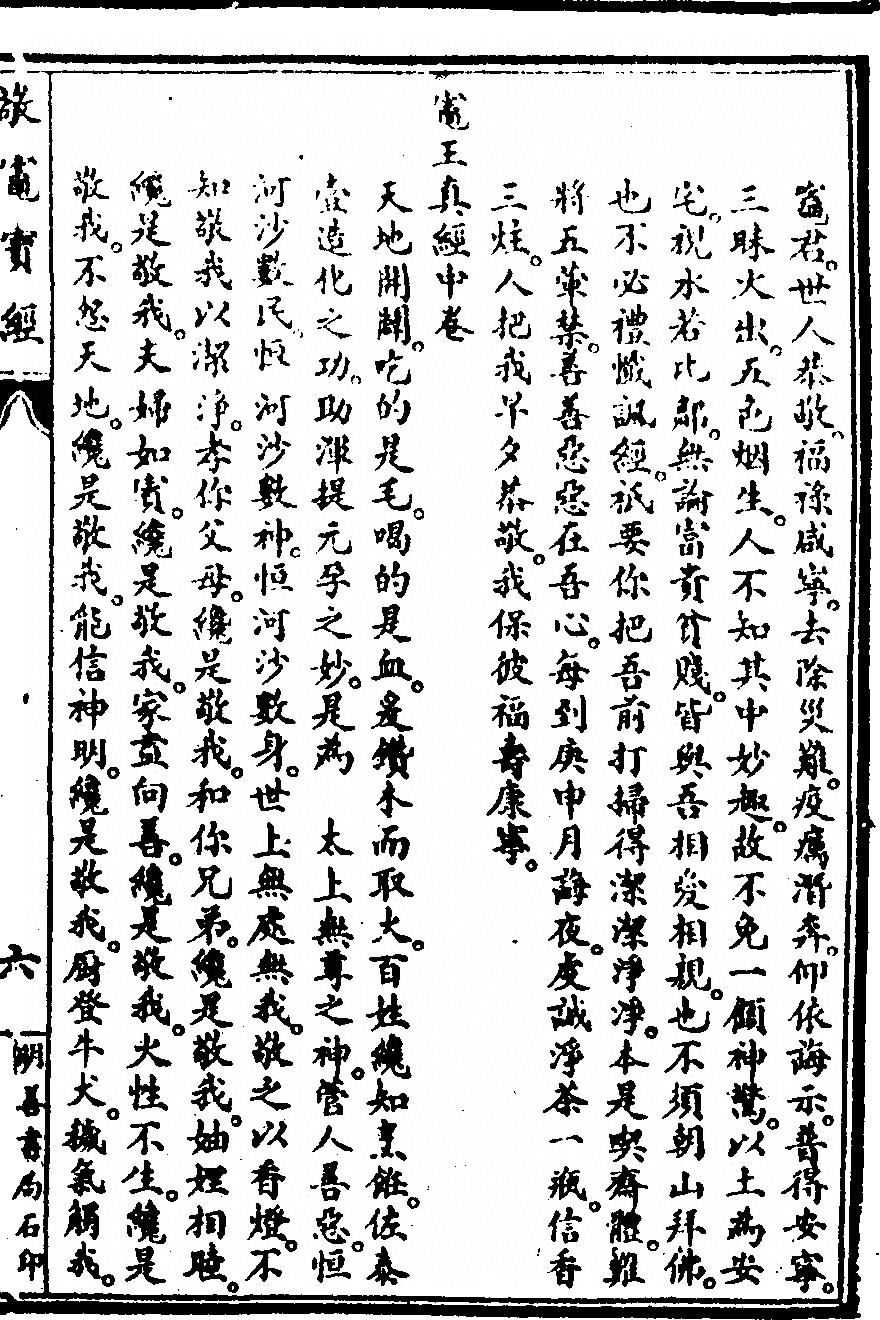 竈君。世人恭敬。福祿咸寧。去除災難。疫癘潛奔。仰依誨示。普得安寧。
三昧火出。五色烟生。人不知其中妙趣。故不免一顧神驚。以土為安
宅。視水若比鄰。無論富貴貧賤。皆與吾相愛相親。也不須朝山拜佛。
也不必禮懺諷經。祇要你把吾前打掃得潔潔淨淨。本是喫齋體。難
將五葷禁。善善惡惡在吾心。每到庚申月誨夜。虔誠淨茶一瓶。信香
三炷。人把我早夕恭敬。我保彼福壽康寧。
竈王真經中卷
天地開闢。吃的是毛。喝的是血。爰鑽木而取火。百姓纔知烹飪。佐泰
壹造化之功。助渾提元孕之妙。是為 太上無尊之神。管人善惡。恒
河沙數民。恒河沙數神。恒河沙數身。世上無處無我。敬之以香燈。不
知敬我以潔淨。孝你父母。纔是敬我。和你兄弟。纔是敬我。妯娌相睦。
纔是敬我。夫婦如賓。纔是敬我。家盡向善。纔是敬我。火性不生。纔是
敬我。不怨天地。纔是敬我。能信神明。纔是敬我。厨登牛犬。穢氣觸我。
敬竈寶經
六
明善書局石印